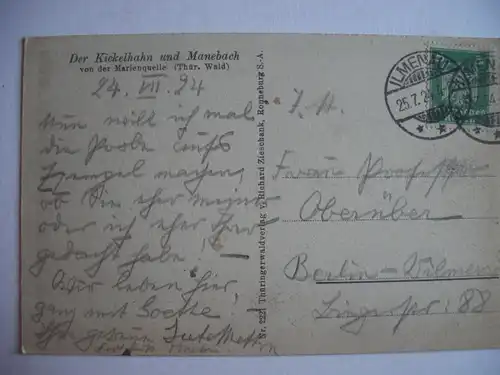 Der Kickelhahn und Manebach
von der Marienquelle (Thür. Wald)
24. VII. 24
Nun will ich mal
die Probe aufs
Exempel machen,
ob Sie eher
oder ich eher
gedacht habe!
Wir leben hier,
ganz mit Goethe
Nr. 222 Thüringerwaldverlag v. Richard Zieschank, Ronneburg S.-A.
ILMENAU
25.7.2
Frau Professor
Oberüber
Berlin-Wilmers
88